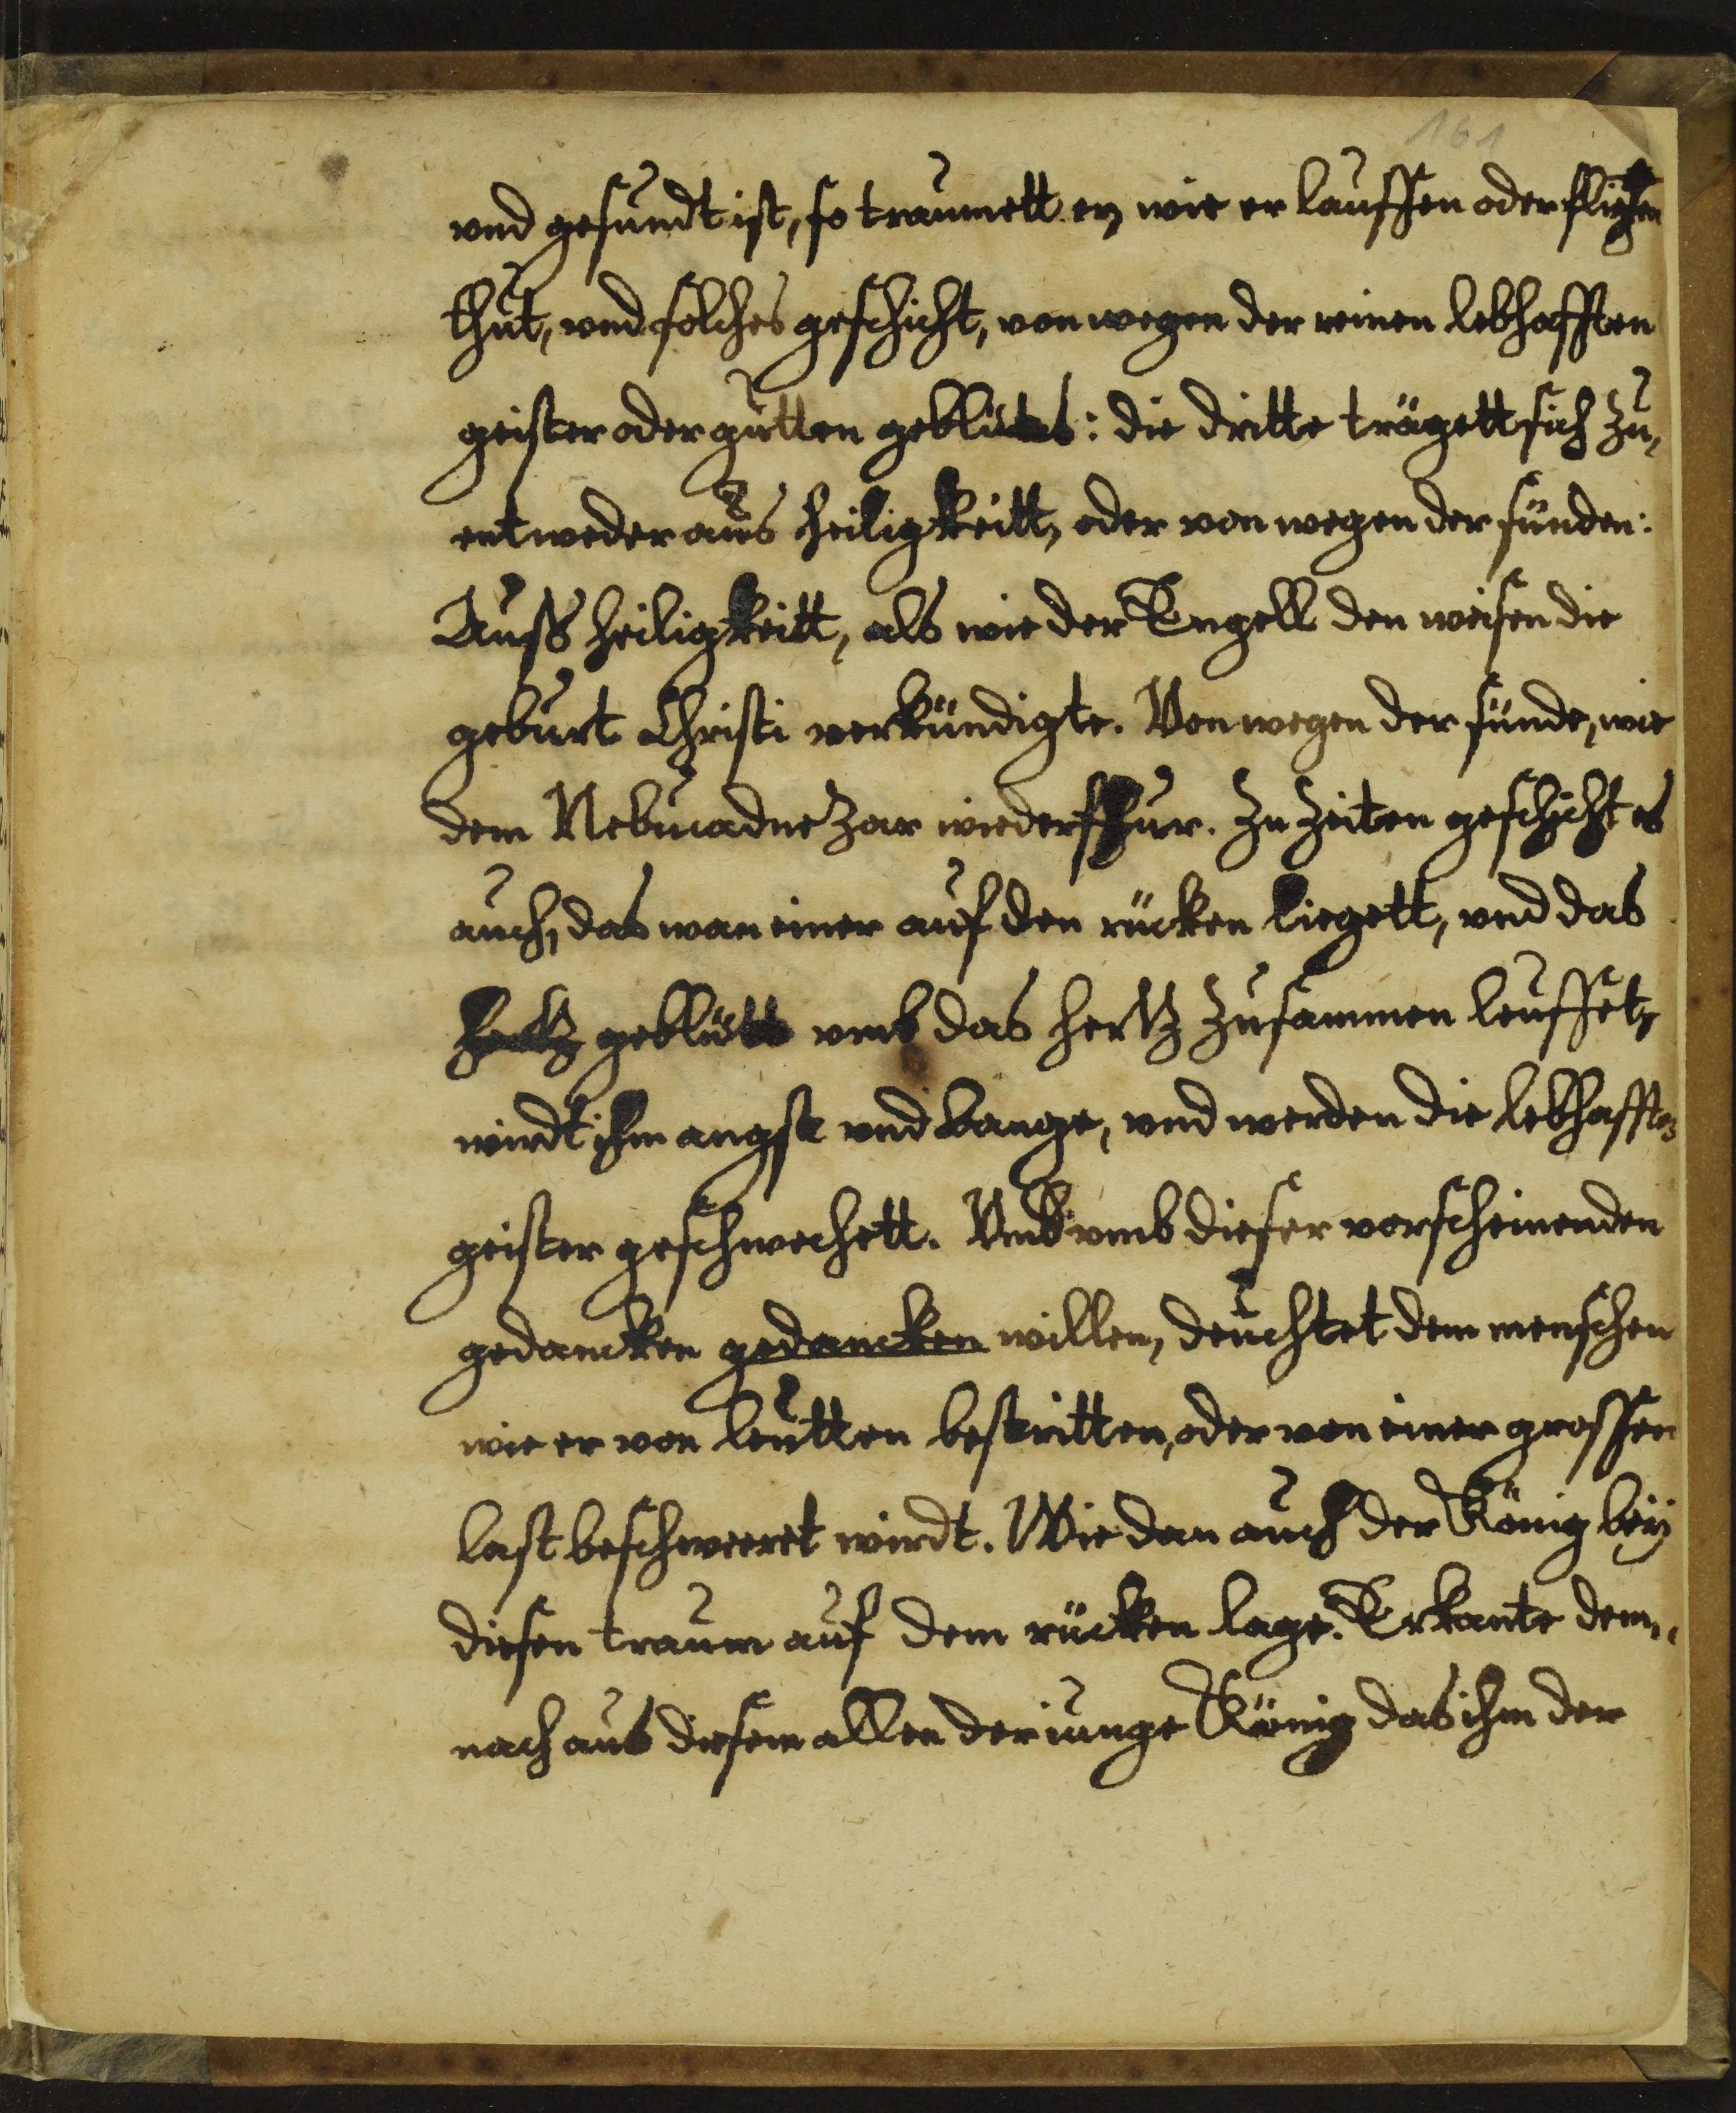 161
und gesundt ist, so traumett er, wie er lauffen oder fligen
thut, und solches geschicht, von wegen der reinen lebhafften
geister oder gutten geblüts: die dritte trägett sich zu,
entweder aus heiligkeitt, oder von wegen der sünden:
Auss heiligkeitt, als wie der Engell den weisen die
geburt Christi verkündigte. Von wegen der sünde, wie
dem Nebucadnezar wiederfhur. Zu Zeiten geschicht es
auch, das wan einer auf den rücken liegett, und das
hertz geblütt umb das hertz zusammen leuffet,
wirdt ihm angst und bange, und werden die lebhafften
geister geschwechett. Und umb dieser vorscheinenden
gedancken gedancken willen, deuchtet dem menschen
wie er von leutten bestritten, oder von einer grossen
last beschweret wirdt. Wie dan auch der König beÿ
diesen traum auf dem rücken lage. Erkante dem-
nach aus diesem allen der iunge König das ihm der